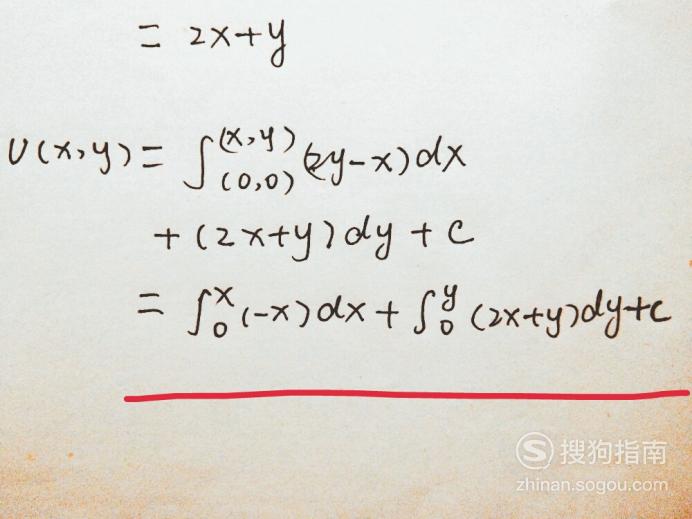 = 2x+y
U(x,y)= ∫(0,0)(x,y) (2y-x)dx
+(2x+y)dy+c
= ∫0x(-x)dx+∫0y(2x+y)dy+c
S 搜狗指南
zhinan.sogou.com